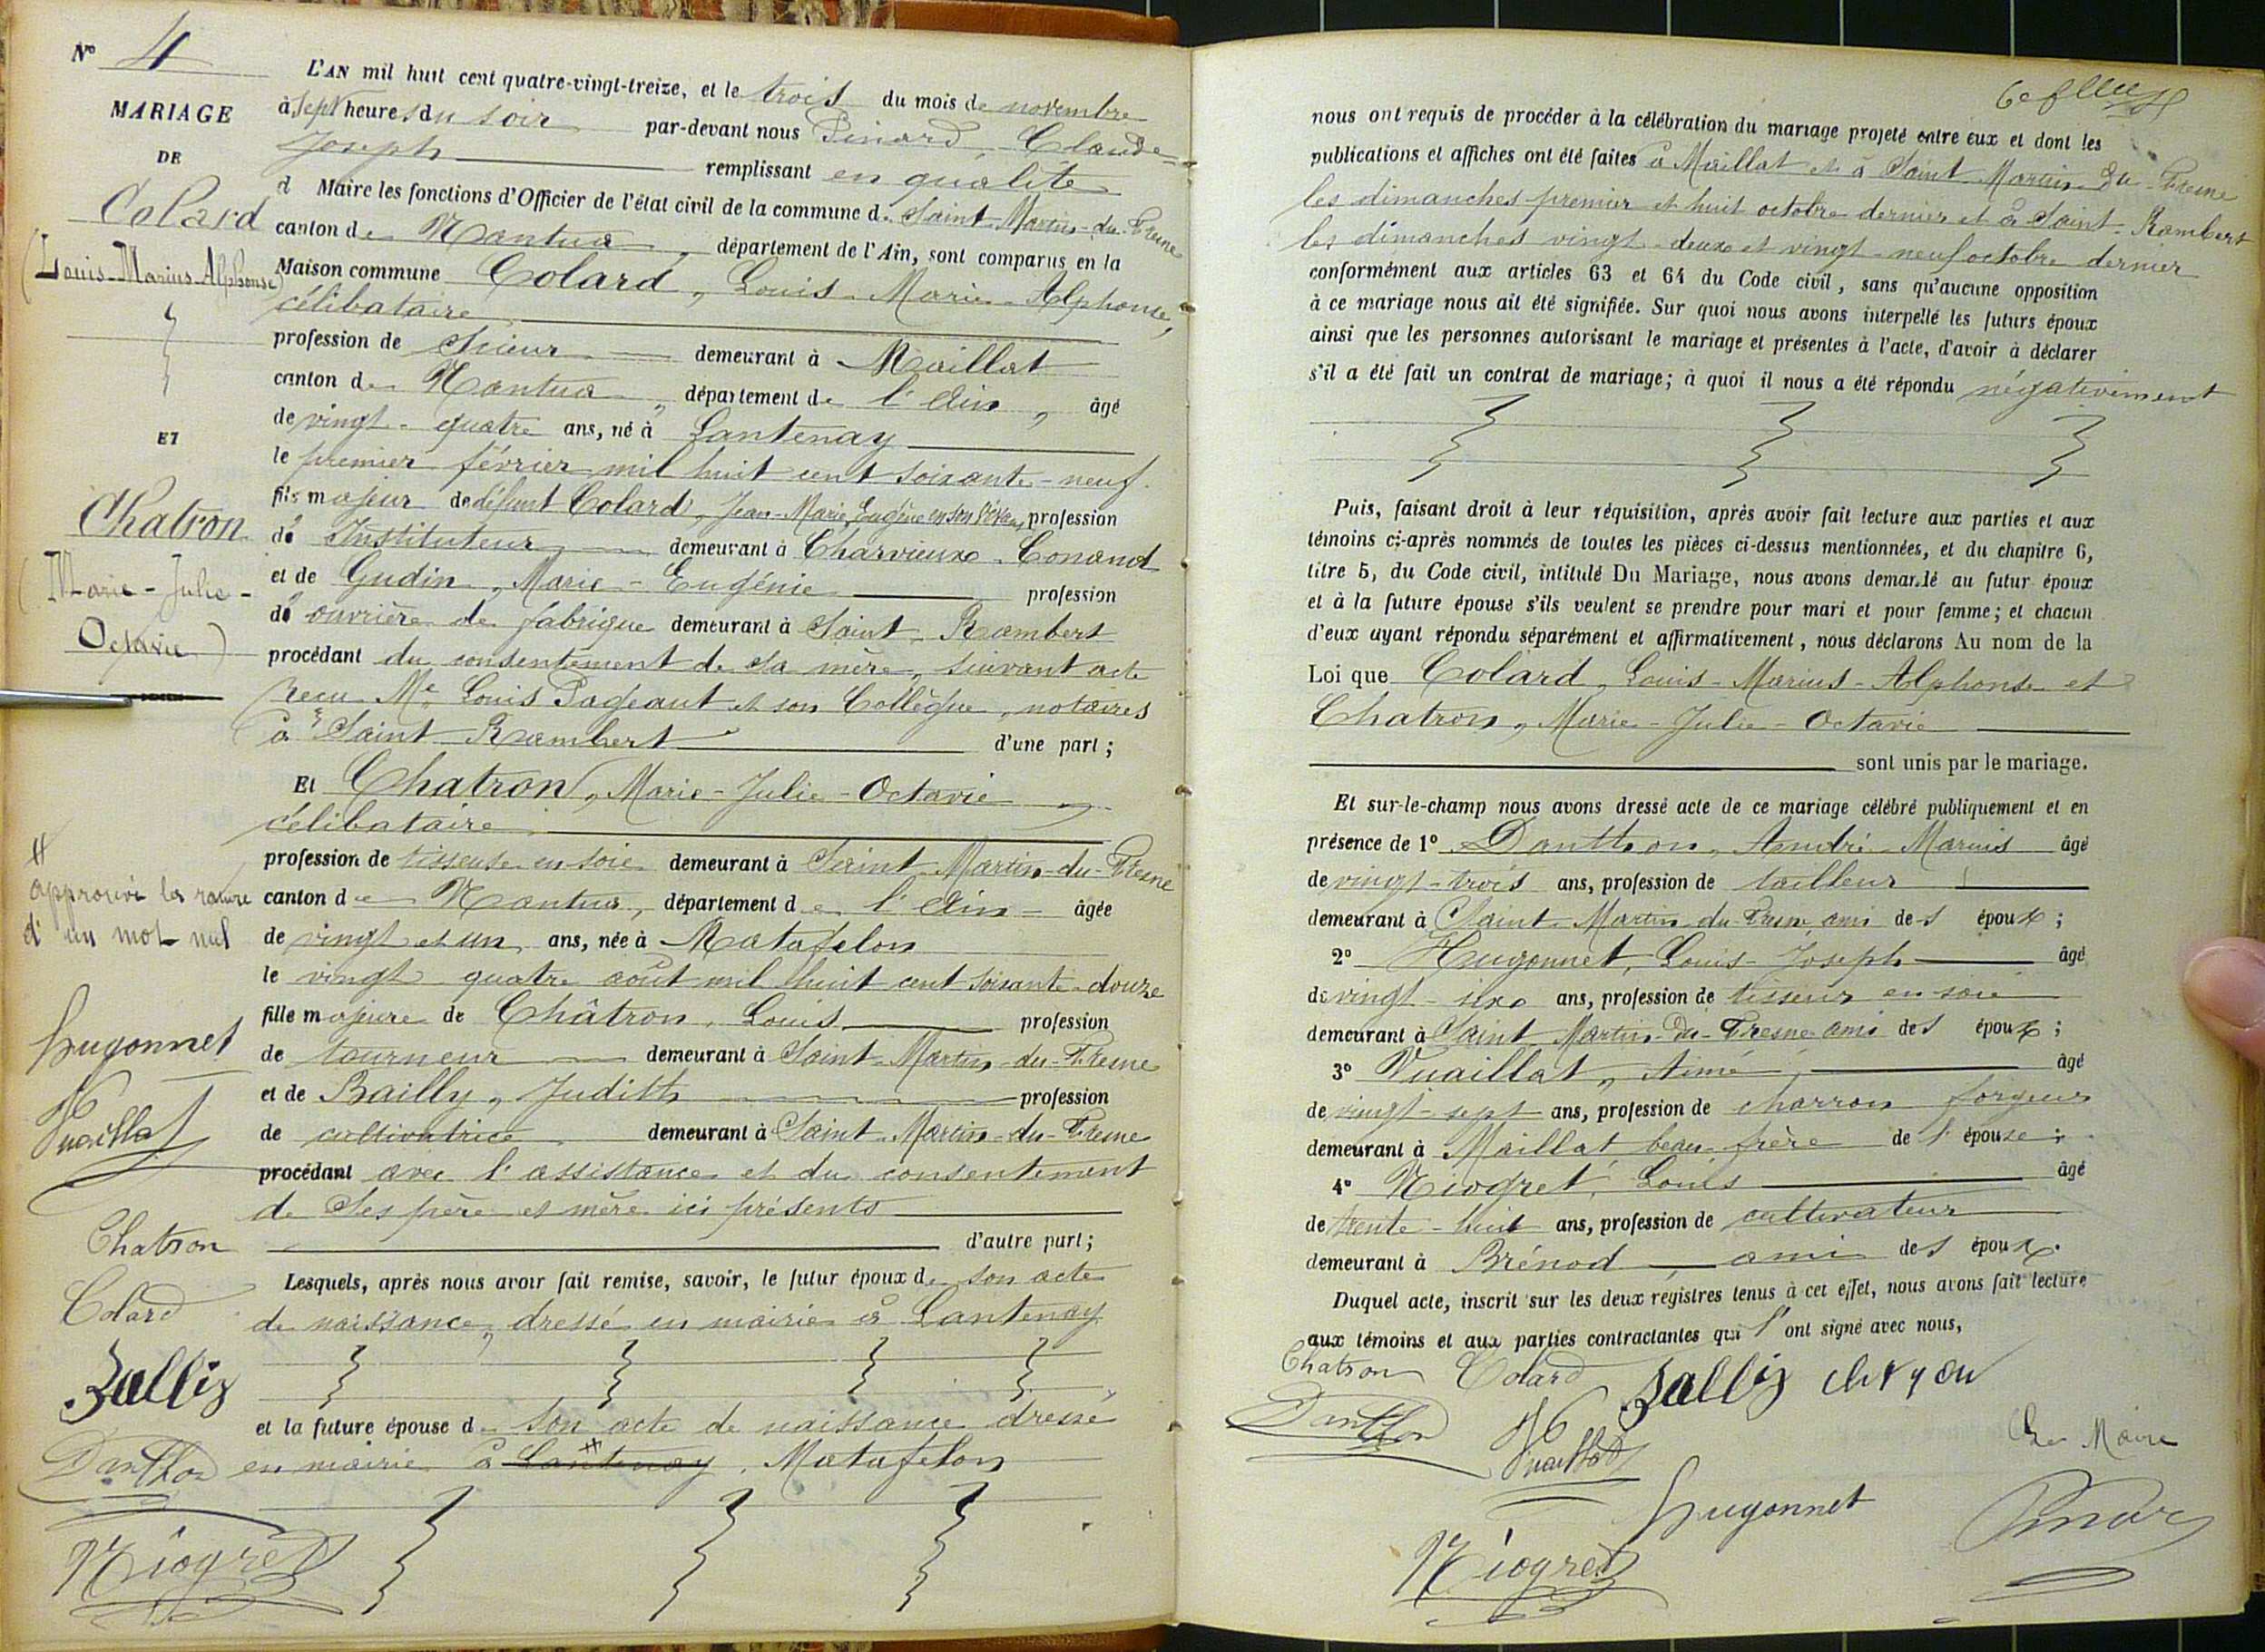 N° 4
MARIAGE
DE
Colard
(Louis-Marius-Alphonse)
ET
Chatron
(Marie-Julie-
Octavie)
#
approuvé la rature
d'un mot nul
Hugonnet
Vuaillat
Chatron
Colard
Danthon
Niogret
L'AN mil huit cent quatre-vingt-treize, et le trois du mois de novembre
à sept heures du soir par-devant nous Pinard, Claude-
Joseph remplissant en qualité
d Maire les fonctions d'Officier de l'état civil de la commune de Saint-Martin-du-Fresne
canton de Nantua, département de l'Ain, sont comparus en la
Maison commune Colard, Louis-Marius-Alphonse,
célibataire
profession de Scieur demeurant à Maillat
canton de Nantua, département de l'Ain, âgé
de vingt-quatre ans, né à Lantenay
le premier février mil huit cent soixante-neuf.
fils majeur de défunt Colard, Jean-Marie Eugène en son vivant, profession
de Instituteur demeurant à Charvieux-Conand
et de Gudin, Marie-Eugénie profession
de ouvrière de fabrique demeurant à Saint-Rambert
procédant du consentement de sa mère, suivant acte
reçu Me Louis Pageaut et son Collègue, notaires
à Saint Rambert d'une part;
Et Chatron, Marie-Julie-Octavie
célibataire
profession de tisseuse en soie demeurant à Saint-Martin-du-Fresne
canton de Nantua, département de l'Ain âgée
de vingt et un ans, née à Matafelon
le vingt quatre août mil huit cent soixante-douze
fille majeure de Châtron, Louis profession
de tourneur demeurant à Saint-Martin-du-Fresne
et de Bailly, Judith profession
de cultivatrice demeurant à Saint-Martin-du-Fresne
procédant avec l'assistance et du consentement
de ses père et mère ici présents
d'autre part;
Lesquels, après nous avoir fait remise, savoir, le futur époux de son acte
de naissance, dressé en mairie à Lantenay
et la future épouse de son acte de naissance dressé
en mairie à Lantenay # Matafelon
nous ont requis de procéder à la célébration du mariage projeté entre eux et dont les
publications et affiches ont été faites à Maillat et à Saint Martin-du-Fresne
les dimanches premier et huit octobre dernier et à Saint-Rambert
les dimanches vingt-deux et vingt-neuf octobre dernier
conformément aux articles 63 et 64 du Code civil, sans qu'aucune opposition
à ce mariage nous ait été signifiée. Sur quoi nous avons interpellé les futurs époux
ainsi que les personnes autorisant le mariage et présentes à l'acte, d'avoir à déclarer
s'il a été fait un contrat de mariage; à quoi il nous a été répondu négativement
Puis, faisant droit à leur réquisition, après avoir fait lecture aux parties et aux
témoins ci-après nommés de toutes les pièces ci-dessus mentionnées, et du chapitre 6,
titre 5, du Code civil, intitulé Du Mariage, nous avons demandé au futur époux
et à la future épouse s'ils veulent se prendre pour mari et pour femme; et chacun
d'eux ayant répondu séparément et affirmativement, nous déclarons Au nom de la
Loi que Colard, Louis-Marius-Alphonse et
Chatron, Marie-Julie-Octavie
sont unis par le mariage.
Et sur-le-champ nous avons dressé acte de ce mariage célébré publiquement et en
présence de 1° Danthon, André-Marius âgé
de vingt-trois ans, profession de tailleur
demeurant à Saint-Martin-du-Fresne, ami des époux;
2° Hugonnet, Louis-Joseph âgé
de vingt-six ans, profession de tisseur en soie
demeurant à Saint-Martin-du-Fresne ami des époux;
3° Vuaillat, Aimé, âgé
de vingt-sept ans, profession de charron forgeur
demeurant à Maillat beau-frère de l'épouse;
4° Niogret, Louis âgé
de trente-huit ans, profession de cultivateur
demeurant à Brénod, ami des époux.
Duquel acte, inscrit sur les deux registres tenus à cet effet, nous avons fait lecture
aux témoins et aux parties contractantes qui l'ont signé avec nous,
Chatron Colard
Danthon Vuaillat Le Maire
Hugonnet Pinard
Niogret